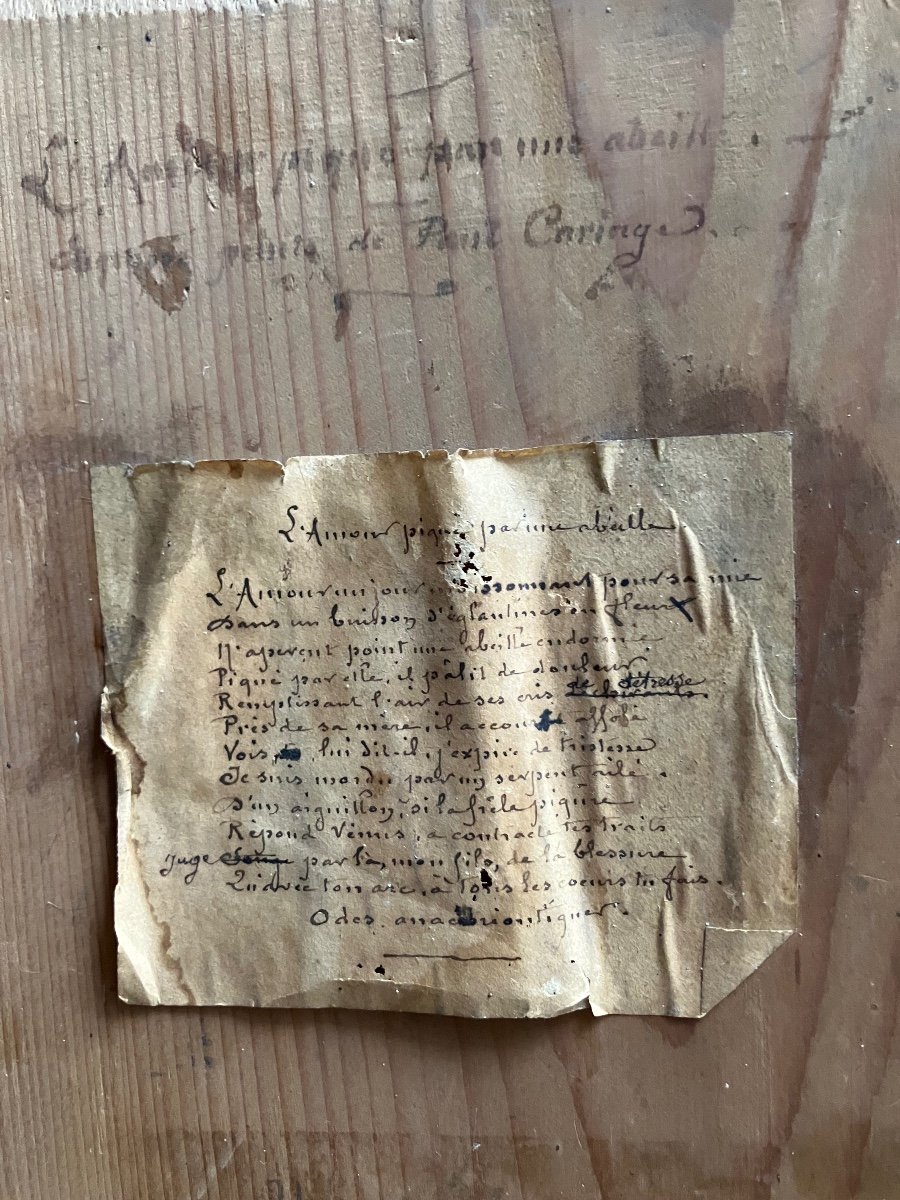 L'Amour piqué par une abeille.
peinte de Paul Cariage.
L'Amour piqué par une abeille
L'Amour un jour moissonnant pour sa mie
Dans un buisson d'églantines en fleur
N'aperçut point une abeille endormie
Piqué par elle, il pâlit de douleur
Remplissant l'air de ses cris de détresse
Près de sa mère, il accourt affolé
Vois, lui dit-il, j'expire de tristesse
Je suis mordu par un serpent ailé.
D'un aiguillon, si la frêle piqûre
Répond Vénus, a contracté tes traits
Juge par là, mon fils, de la blessure
Qu'avec ton arc, à tous les coeurs tu fais.
Odes